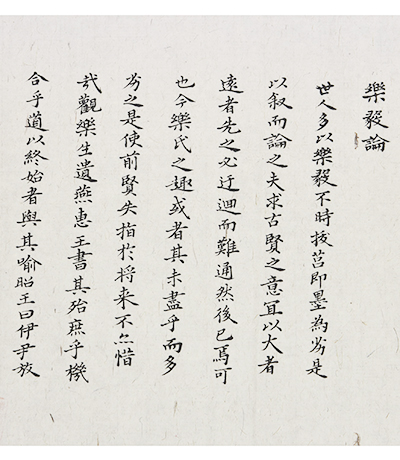 樂毅論
世人多以樂毅不時拔莒即墨為劣是
以叙而論之夫求古賢之意宜以大者
遠者先之必迂迴而難通然後已焉可
也今樂氏之趣或者其未盡乎而多
劣之是使前賢失指於将来不亦惜
哉觀樂生遺燕惠王書其殆庶乎機
合乎道以終始者與其喻昭王曰伊尹放